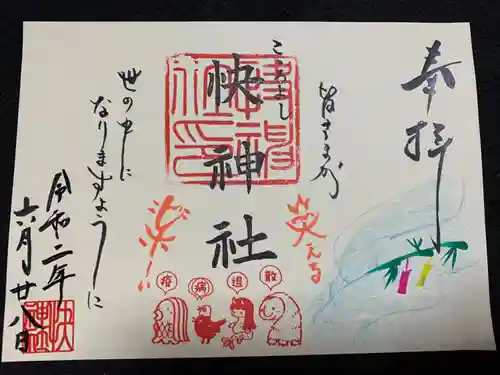 奉拝
皆さまが
笑える
こころよし
快神社
楽しい
世の中に
なりますように
令和二年
六月廿八日
疫
病
退
散